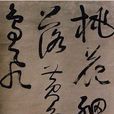 桃花細
落黃
鳥飛